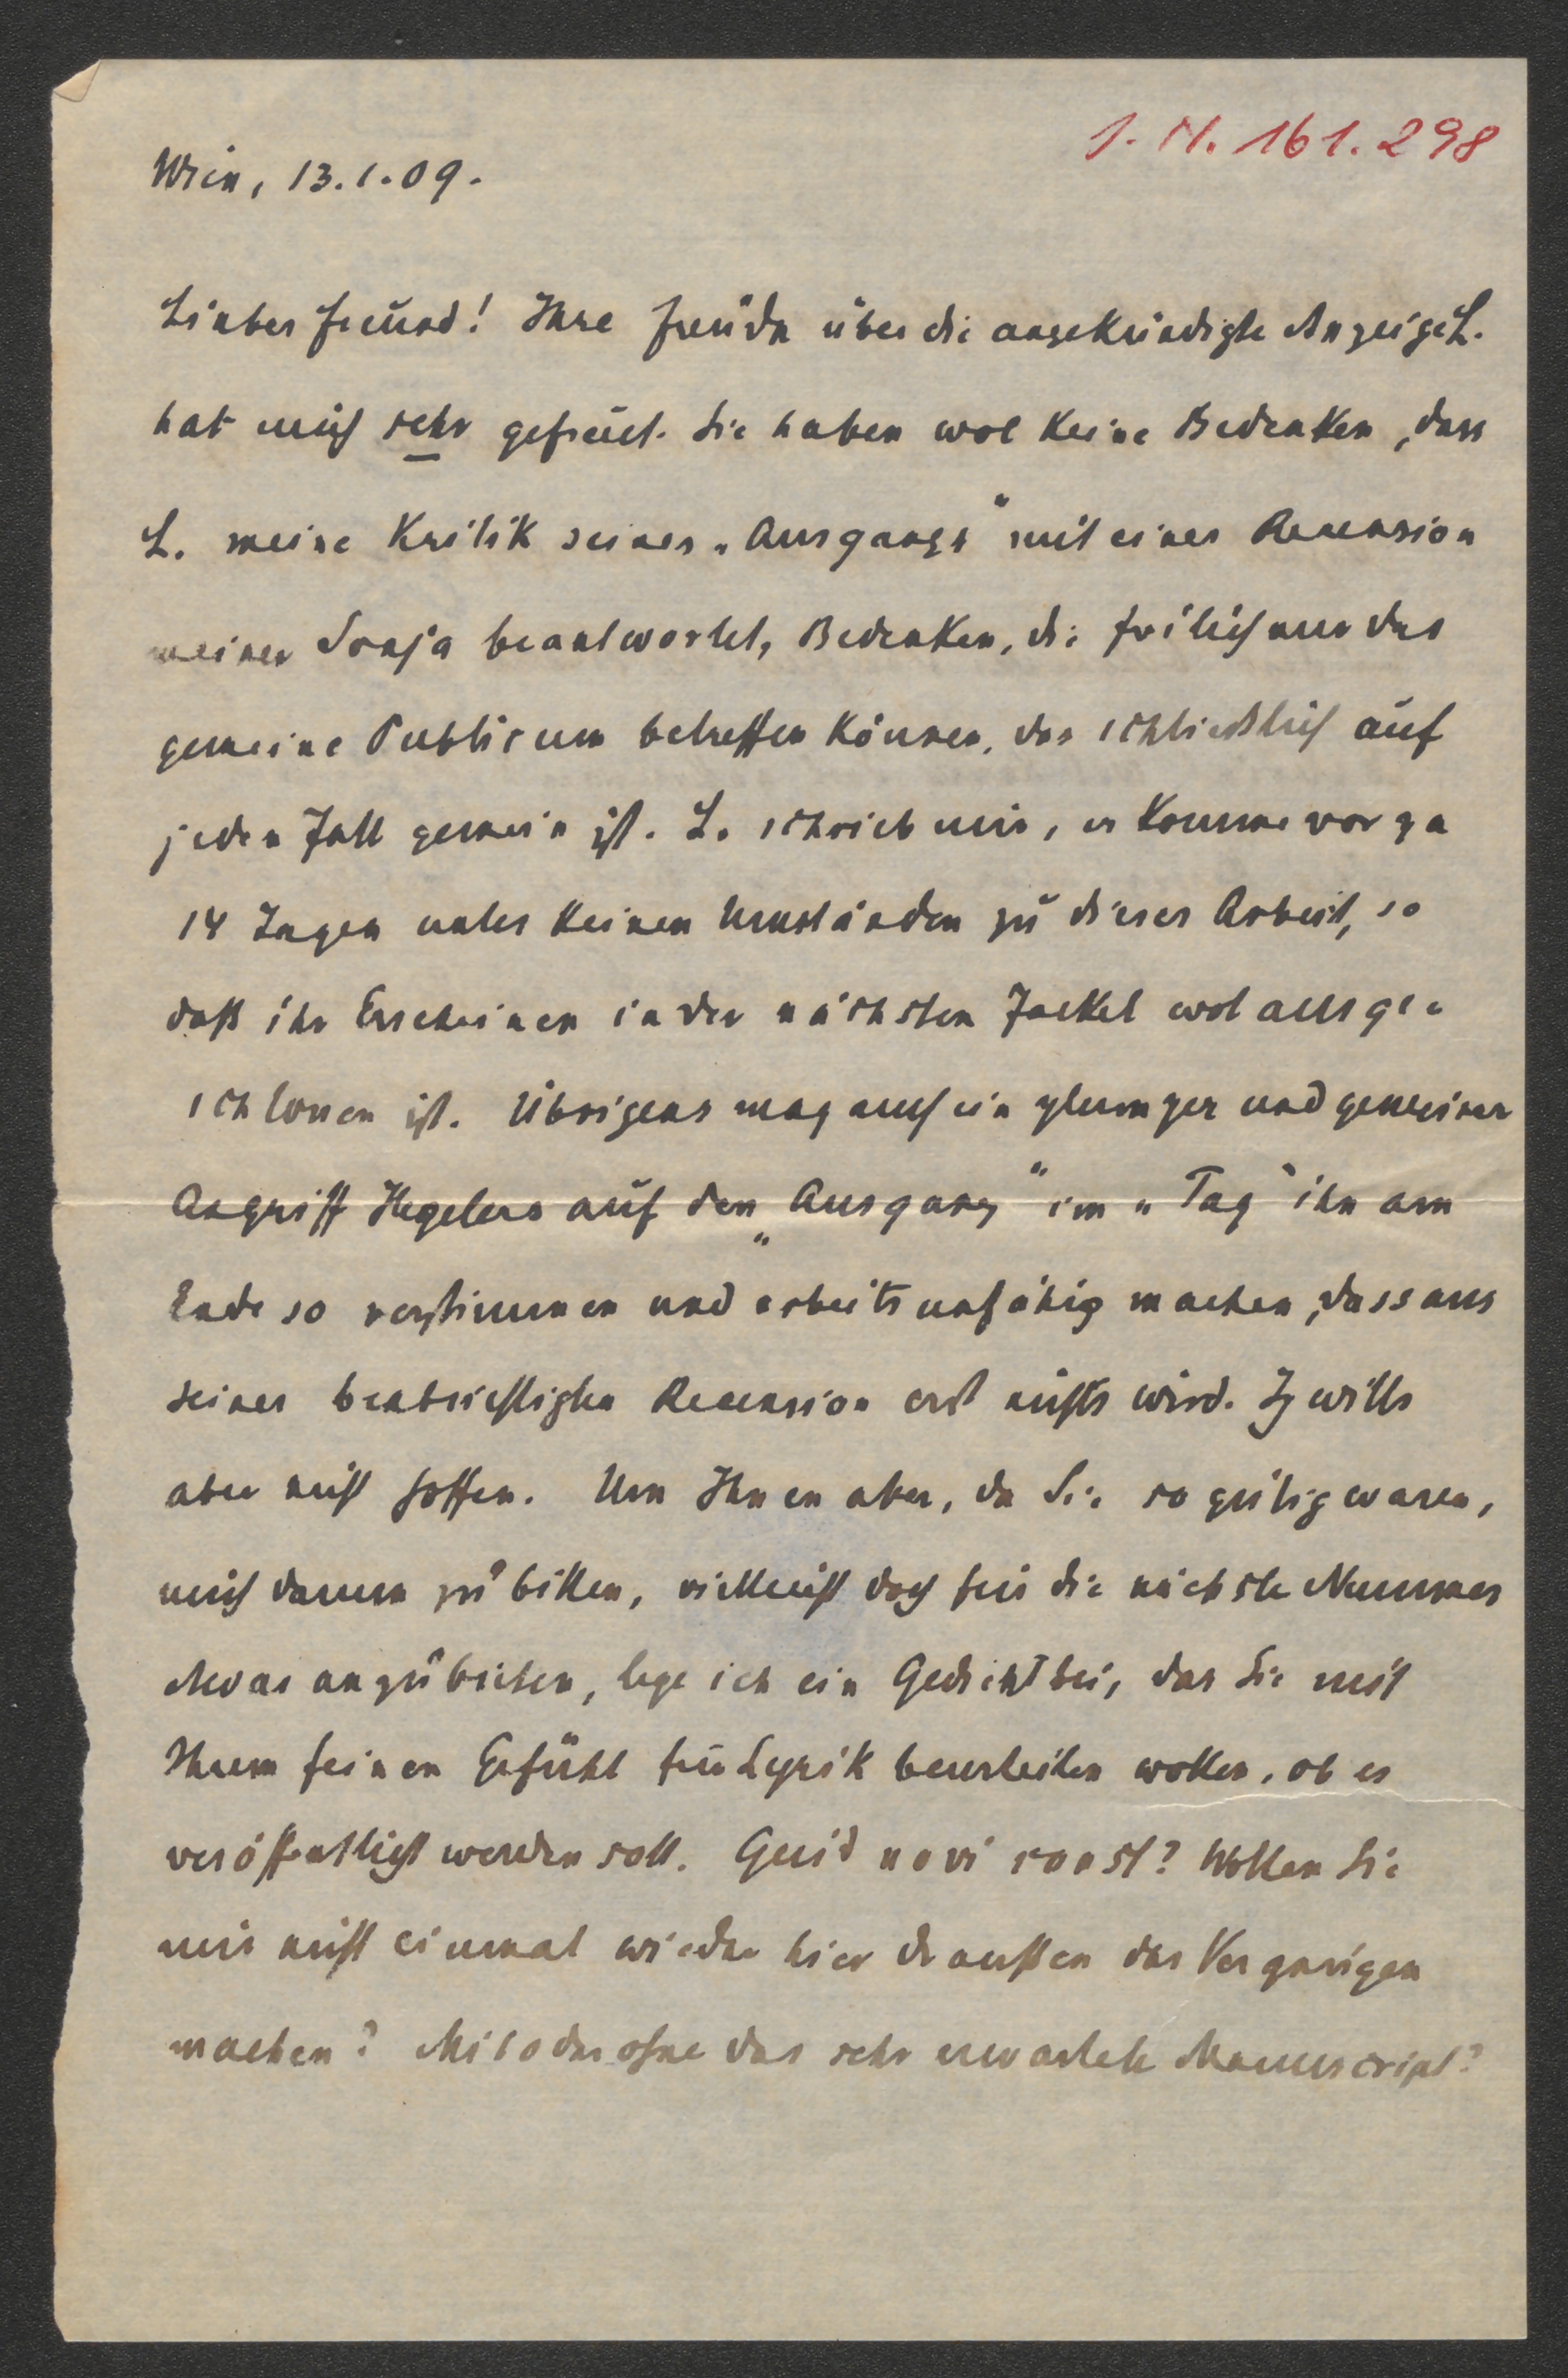 J. N. 161.298
Wien, 13.1.09.
Lieber Freund! Ihre Freude über die angekündigte Anzeige L.
hat mich sehr gefreut. Sie haben wol keine Bedenken, dass
L. meine Kritik seines „Ausgangs“ mit einer Recension
meiner Sonja beantwortet, Bedenken, die freilich nur das
gemeine Publicum betreffen können, das schließlich auf
jeden Fall gemein ist. L. schrieb mir, er komme vor za
14 Tagen unter keinen Umständen zu dieser Arbeit, so
daß ihr Erscheinen in der nächsten Fackel wol ausge-
schlossen ist. Übrigens mag auch ein plumper und gemeiner
Angriff Hegelers auf den „Ausgang“ im „Tag“ ihn am
Ende so verstimmen und arbeitsunfähig machen, dass aus
seiner beabsichtigten Recension erst nichts wird. Ich wills
aber nicht hoffen. Um Ihnen aber, da Sie so gütig waren,
mich darum zu bitten, vielleicht doch für die nächste Nummer
etwas anzubieten, lege ich ein Gedicht bei, das Sie mit
Ihrem feinen Gefühl für Lyrik beurteilen wollen, ob es
veröffentlicht werden soll. Quid novi sonst? Wollen Sie
mir nicht einmal wieder hier draußen das Vergnügen
machen? Mit oder ohne das sehr erwartete Manuscript?